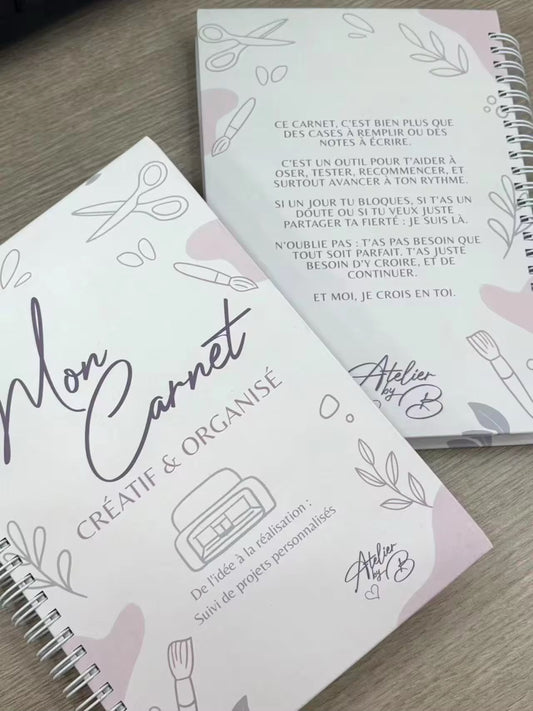 CE CARNET, C'EST BIEN PLUS QUE
DES CASES À REMPLIR OU DES
NOTES À ÉCRIRE.
C'EST UN OUTIL POUR T'AIDER À
OSER, TESTER, RECOMMENCER, ET
SURTOUT AVANCER À TON RYTHME.
SI UN JOUR TU BLOQUES, SI T'AS UN
DOUTE OU SI TU VEUX JUSTE
PARTAGER TA FIERTÉ : JE SUIS LÀ.
N'OUBLIE PAS : T'AS PAS BESOIN QUE
TOUT SOIT PARFAIT. T'AS JUSTE
BESOIN D'Y CROIRE, ET DE
CONTINUER.
ET MOI, JE CROIS EN TOI.
Atelier
by B
Mon
Carnet
CRÉATIF & ORGANISÉ
De l'idée à la réalisation :
Suivi de projets personnalisés
Atelier
by B